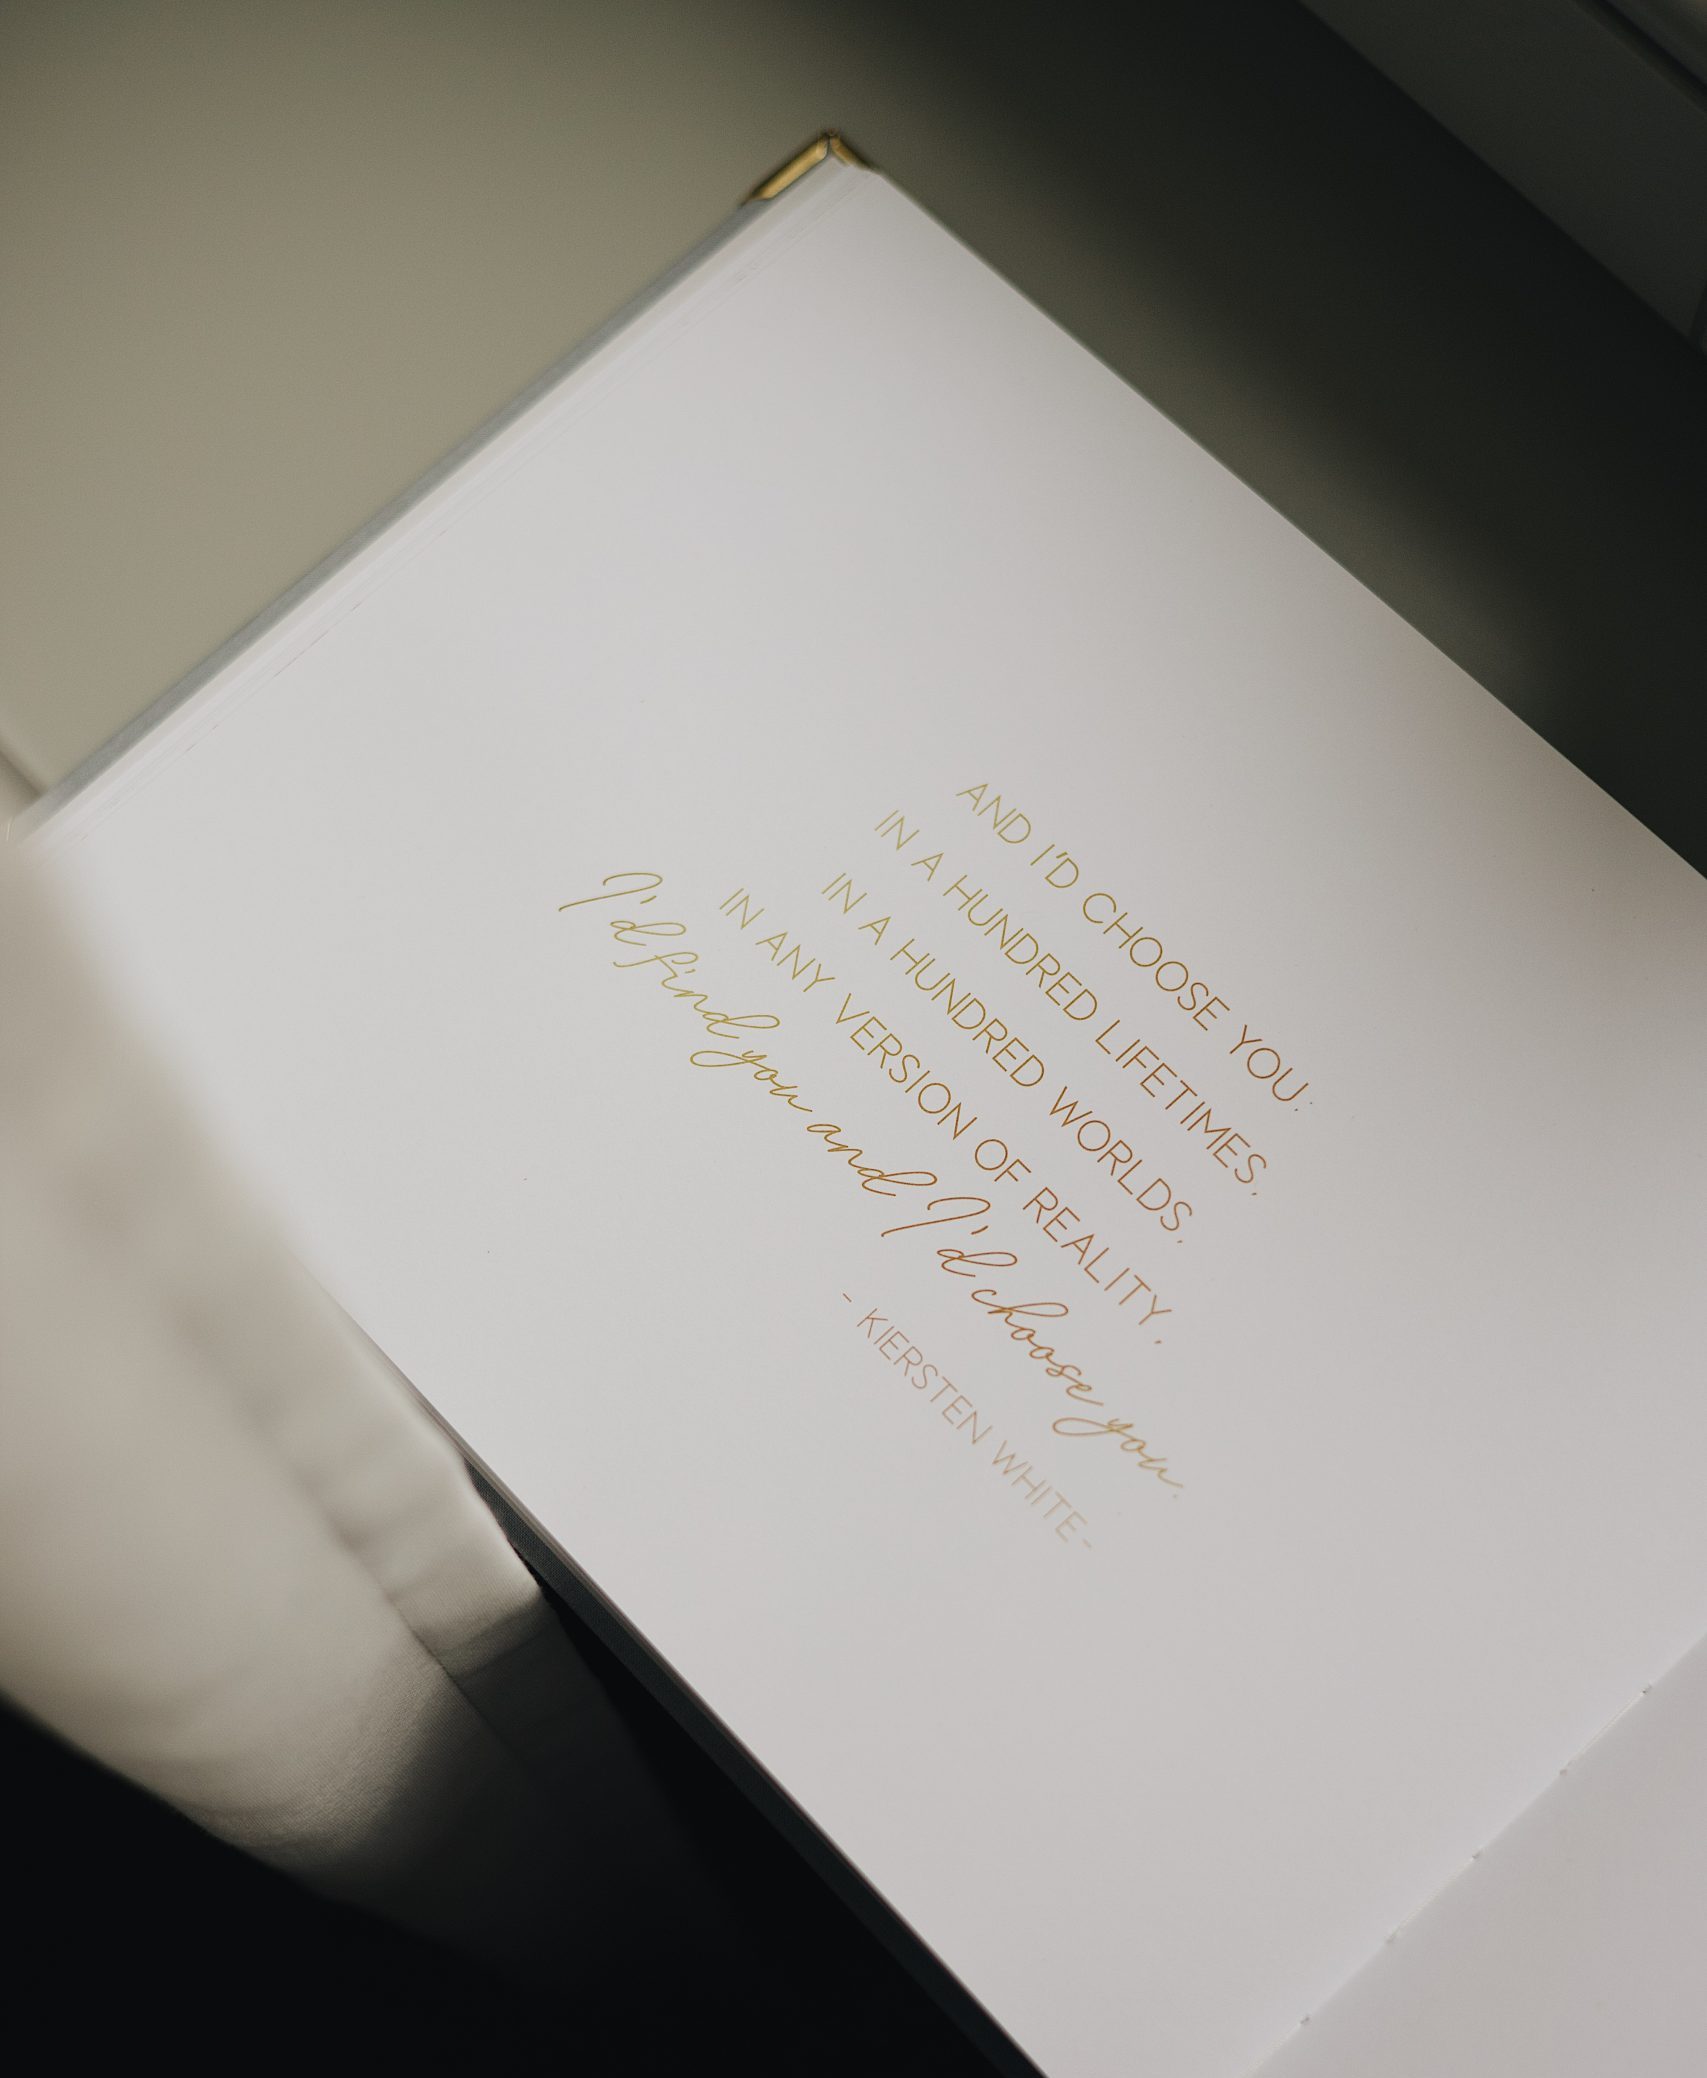 AND I'D CHOOSE YOU;
IN A HUNDRED LIFETIMES,
IN A HUNDRED WORLDS,
IN ANY VERSION OF REALITY,
I'd find you and I'd choose you.
- KIERSTEN WHITE -